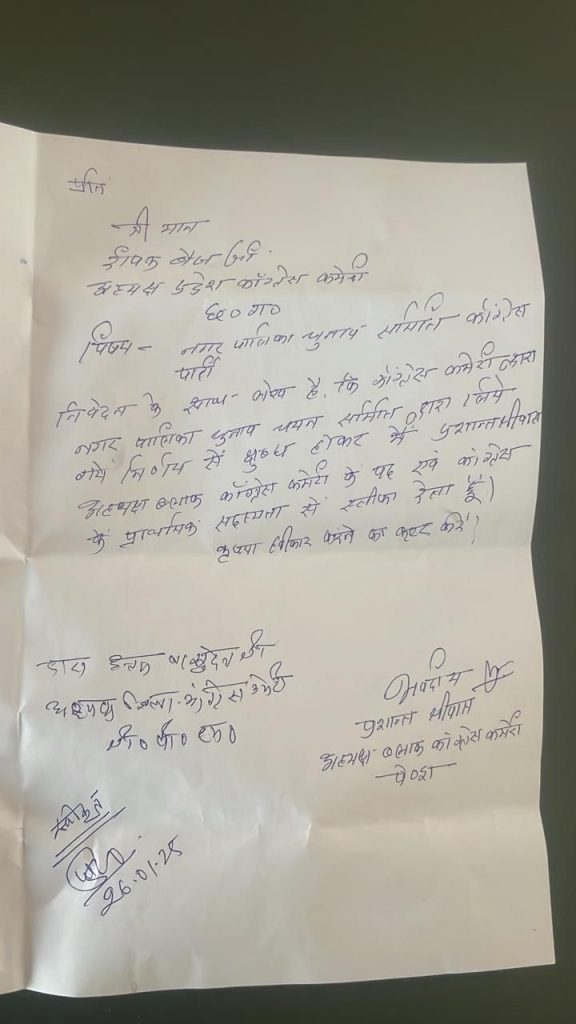 प्रति
श्री मान
दीपक बैज जी
अध्यक्ष प्रदेश कॉंग्रेस कमेटी
छ०ग०
विषय - नगर पालिका चुनाव समिति कांग्रेस
पार्टी
निवेदन के साथ लेख है. कि कांग्रेस कमेटी द्वारा
नगर पालिका चुनाव चयन समिति द्वारा लिये
गये निर्णय से क्षुब्ध होकर मैं प्रशान्त श्रीवास
अध्यक्ष ब्लाक कॉंग्रेस कमेटी के पद एवं कांग्रेस
के प्राथमिक सदस्यता से स्तीफा देता हूँ।
कृपया स्वीकार करने का कष्ट करें।
द्वारा उत्तम वासुदेव जी
अध्यक्ष जिला कांग्रेस कमेटी
जी० पी० एम०
भवदीय
प्रशान्त श्रीवास
अध्यक्ष ब्लाक कॉंग्रेस कमेटी
पेण्ड्रा
स्वीकृत
26.01.25